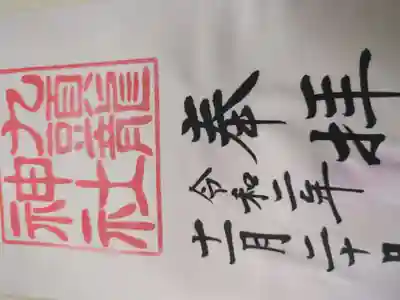 奉拝
令和二年
十二月二十日
九頭龍
神社